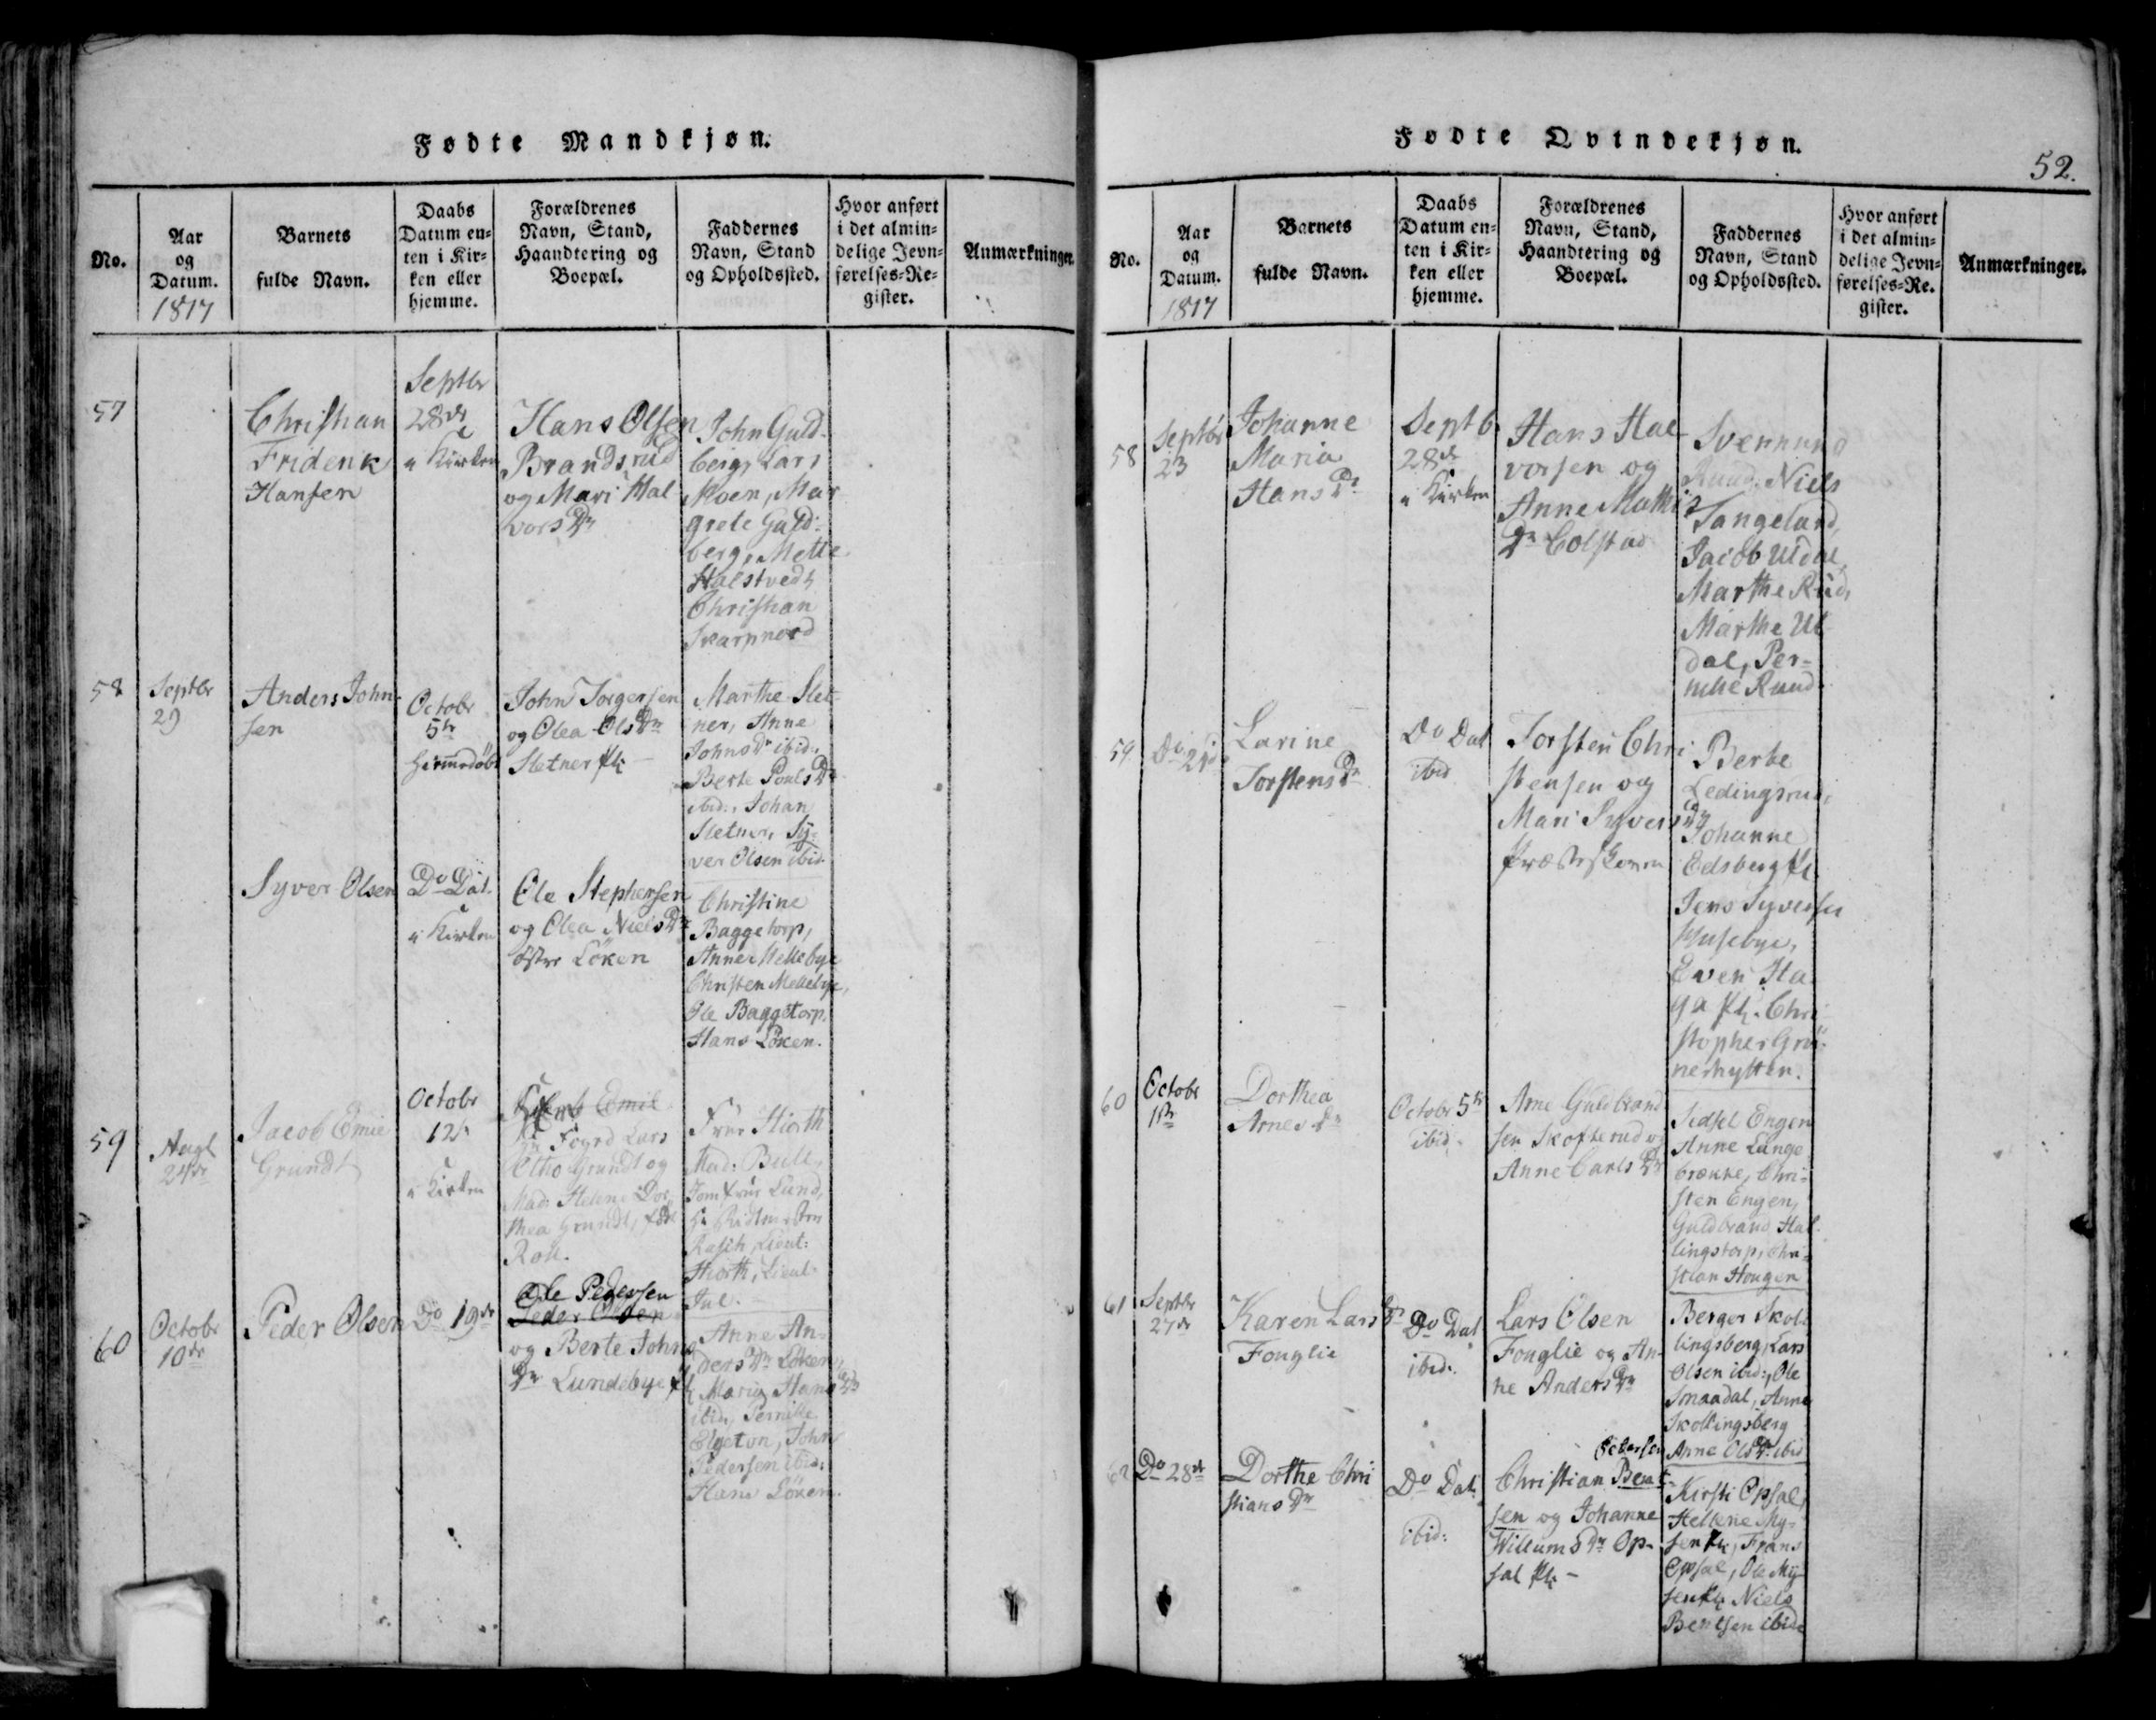 Fødte Mandkjøn.
No.
Aar
og
Datum.
1817
Barnets
fulde Navn.
Daabs
Datum en-
ten i Kir-
ken eller
hjemme.
Forældrenes
Navn, Stand,
Haandtering og
Boepæl.
Faddernes
Navn, Stand
og Opholdssted.
Hvor anført
i det almin-
delige Jevn-
førelses-Re-
gister.
Anmærkninger.
57
Christian
Friderik
Hansen
Septbr
28de
i Kirken
Hans Olsen
Brandsrud
og Mari Hal
vors Dr
John Guld-
berg, Lars
Moen, Mar
grete Guld-
berg, Mette
Halstvedt,
Christian
Skarpnord
58
Septbr
29
Anders John-
sen
Octobr
5te
Hiemmedöbt
John Jörgensen
og Olea Ols Dr
Sletner
Marthe Slet-
ner, Anne
Johns Dr ibid:,
Berte Pouls Dr
ibid:, Johan
Sletner, Sy-
ver Olsen ibid.
Syver Olsen
Do Dat.
i Kirken
Ole Stephensen
og Olea Niels Dr
östre Löken
Christine
Baggetorp,
Anne Mellebye
Christen Mellebye,
Ole Baggetorp.
Hans Löken.
59
Augt
24de
Jacob Emil
Grundt
Octobr
12te
i Kirken
Jacob Emil
Hr Foged Lars
Otho Grundt og
Mad: Helene Dor-
thea Grundt, föd
Roll.
Frue Hiorth
Mad: Bull,
Jomfrue Lund,
Hr Ridtmester
Rasch, Lieut:
Hiorth, Lieut.
Jul.
60
Octobr
10de
Peder Olsen
Do 19de
Ole Pedersen
Peder Olsen
og Berte Johns
Dr Lundebye
Anne An-
ders Dr Löken,
Maria Hans Dr
ibid, Pernille
Elgeton, John
Pedersen ibid:
Hans Löken.
Fødte Qvindekjøn.
52.
No.
Aar
og
Datum.
1817
Barnets
fulde Navn.
Daabs
Datum en-
ten i Kir-
ken eller
hjemme.
Forældrenes
Navn, Stand,
Haandtering og
Boepæl.
Faddernes
Navn, Stand
og Opholdssted.
Hvor anført
i det almin-
delige Jevn-
førelses-Re-
gister.
Anmærkninger.
58
Septbr
23
Johanne
Maria
Hans Dr
Septb
28de
i Kirken
Hans Hal-
vorsen og
Anne Mathis
Dr Colstad
Svenning
Ruud, Niels
Tangeland,
Jacob Utdal,
Marthe Rud,
Marthe Ut
dal, Per-
nille Ruud.
59
Do 21de
Larine
Torstens Dr
Do Dat
ibid
Torsten Chri
stensen og
Mari Syvers Dr
Berte
Ledingsrud,
Johanne
Edsberg
Jens Syversen
Husebye,
Even Ha
ga Chri
stopher Grü-
nerhytten.
60
Octobr
1ste
Dorthea
Arnes Dr
Octobr 5te
ibid.
Arne Guldbrand
sen Skofterud og
Anne Carls Dr
Sedsel Engen
Anne Lange
brække, Chri-
sten Engen,
Guldbrand Hal-
lingstorp, Chri-
stian Hougen
61
Septbr
27de
Karen Lars Dr
Fonglie
Do Dat
ibid:
Lars Olsen
Fonglie og An-
ne Anders Dr
Berger Skol-
lingsberg, Lars
Olsen ibid:, Ole
Smaadal, Anne
Skollingsberg
Anne Ols Dr ibid
62
Do 28de
Dorthe Chri
stians Dr
Do Dat.
ibid:
Pedersen
Christian Bent-
sen og Johanne
Willums Dr Op-
sal
Kirsti Opsal,
Hellene My-
sen, Frans
Opsal, Ole My-
sen Niels
Bentsen ibid: